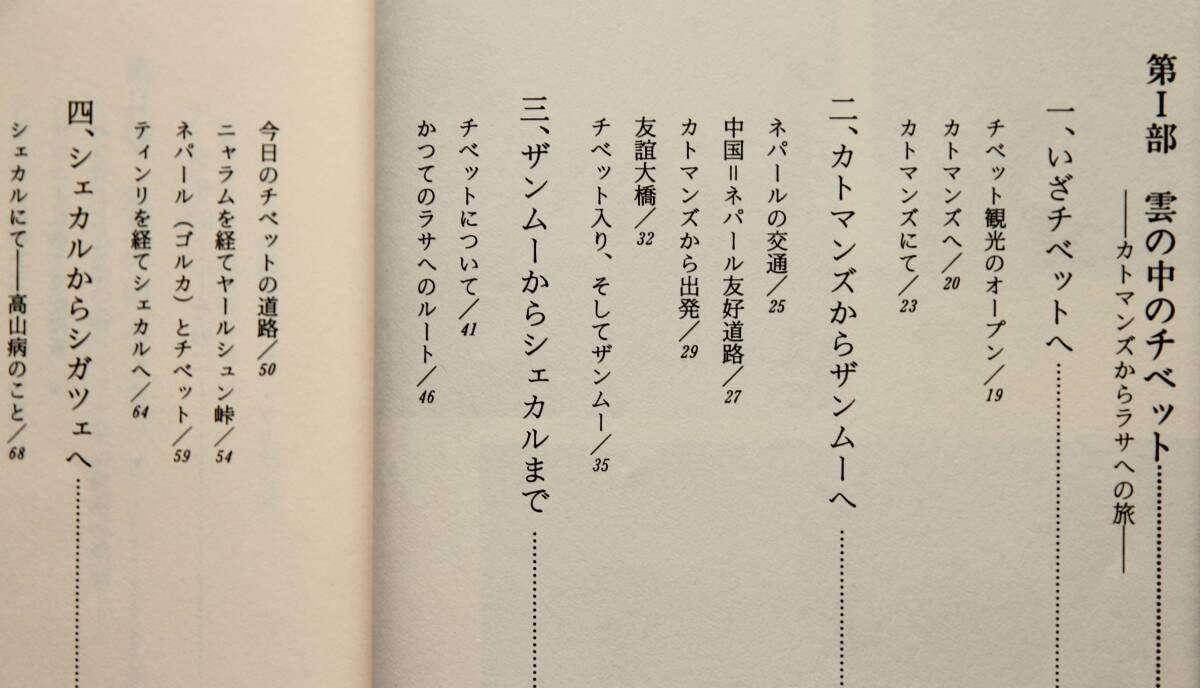 第Ⅰ部　雲の中のチベット
——カトマンズからラサへの旅——
一、いざチベットへ
チベット観光のオープン/19
カトマンズへ/20
カトマンズにて/23
二、カトマンズからザンムーへ
ネパールの交通/25
中国＝ネパール友好道路/27
カトマンズから出発/29
友誼大橋/32
チベット入り、そしてザンムー/35
三、ザンムーからシェカルまで
チベットについて/41
かつてのラサへのルート/46
今日のチベットの道路/50
ニャラムを経てヤールシュン峠/54
ネパール（ゴルカ）とチベット/59
ティンリを経てシェカルへ/64
四、シェカルからシガツェへ
シェカルにて——高山病のこと/68